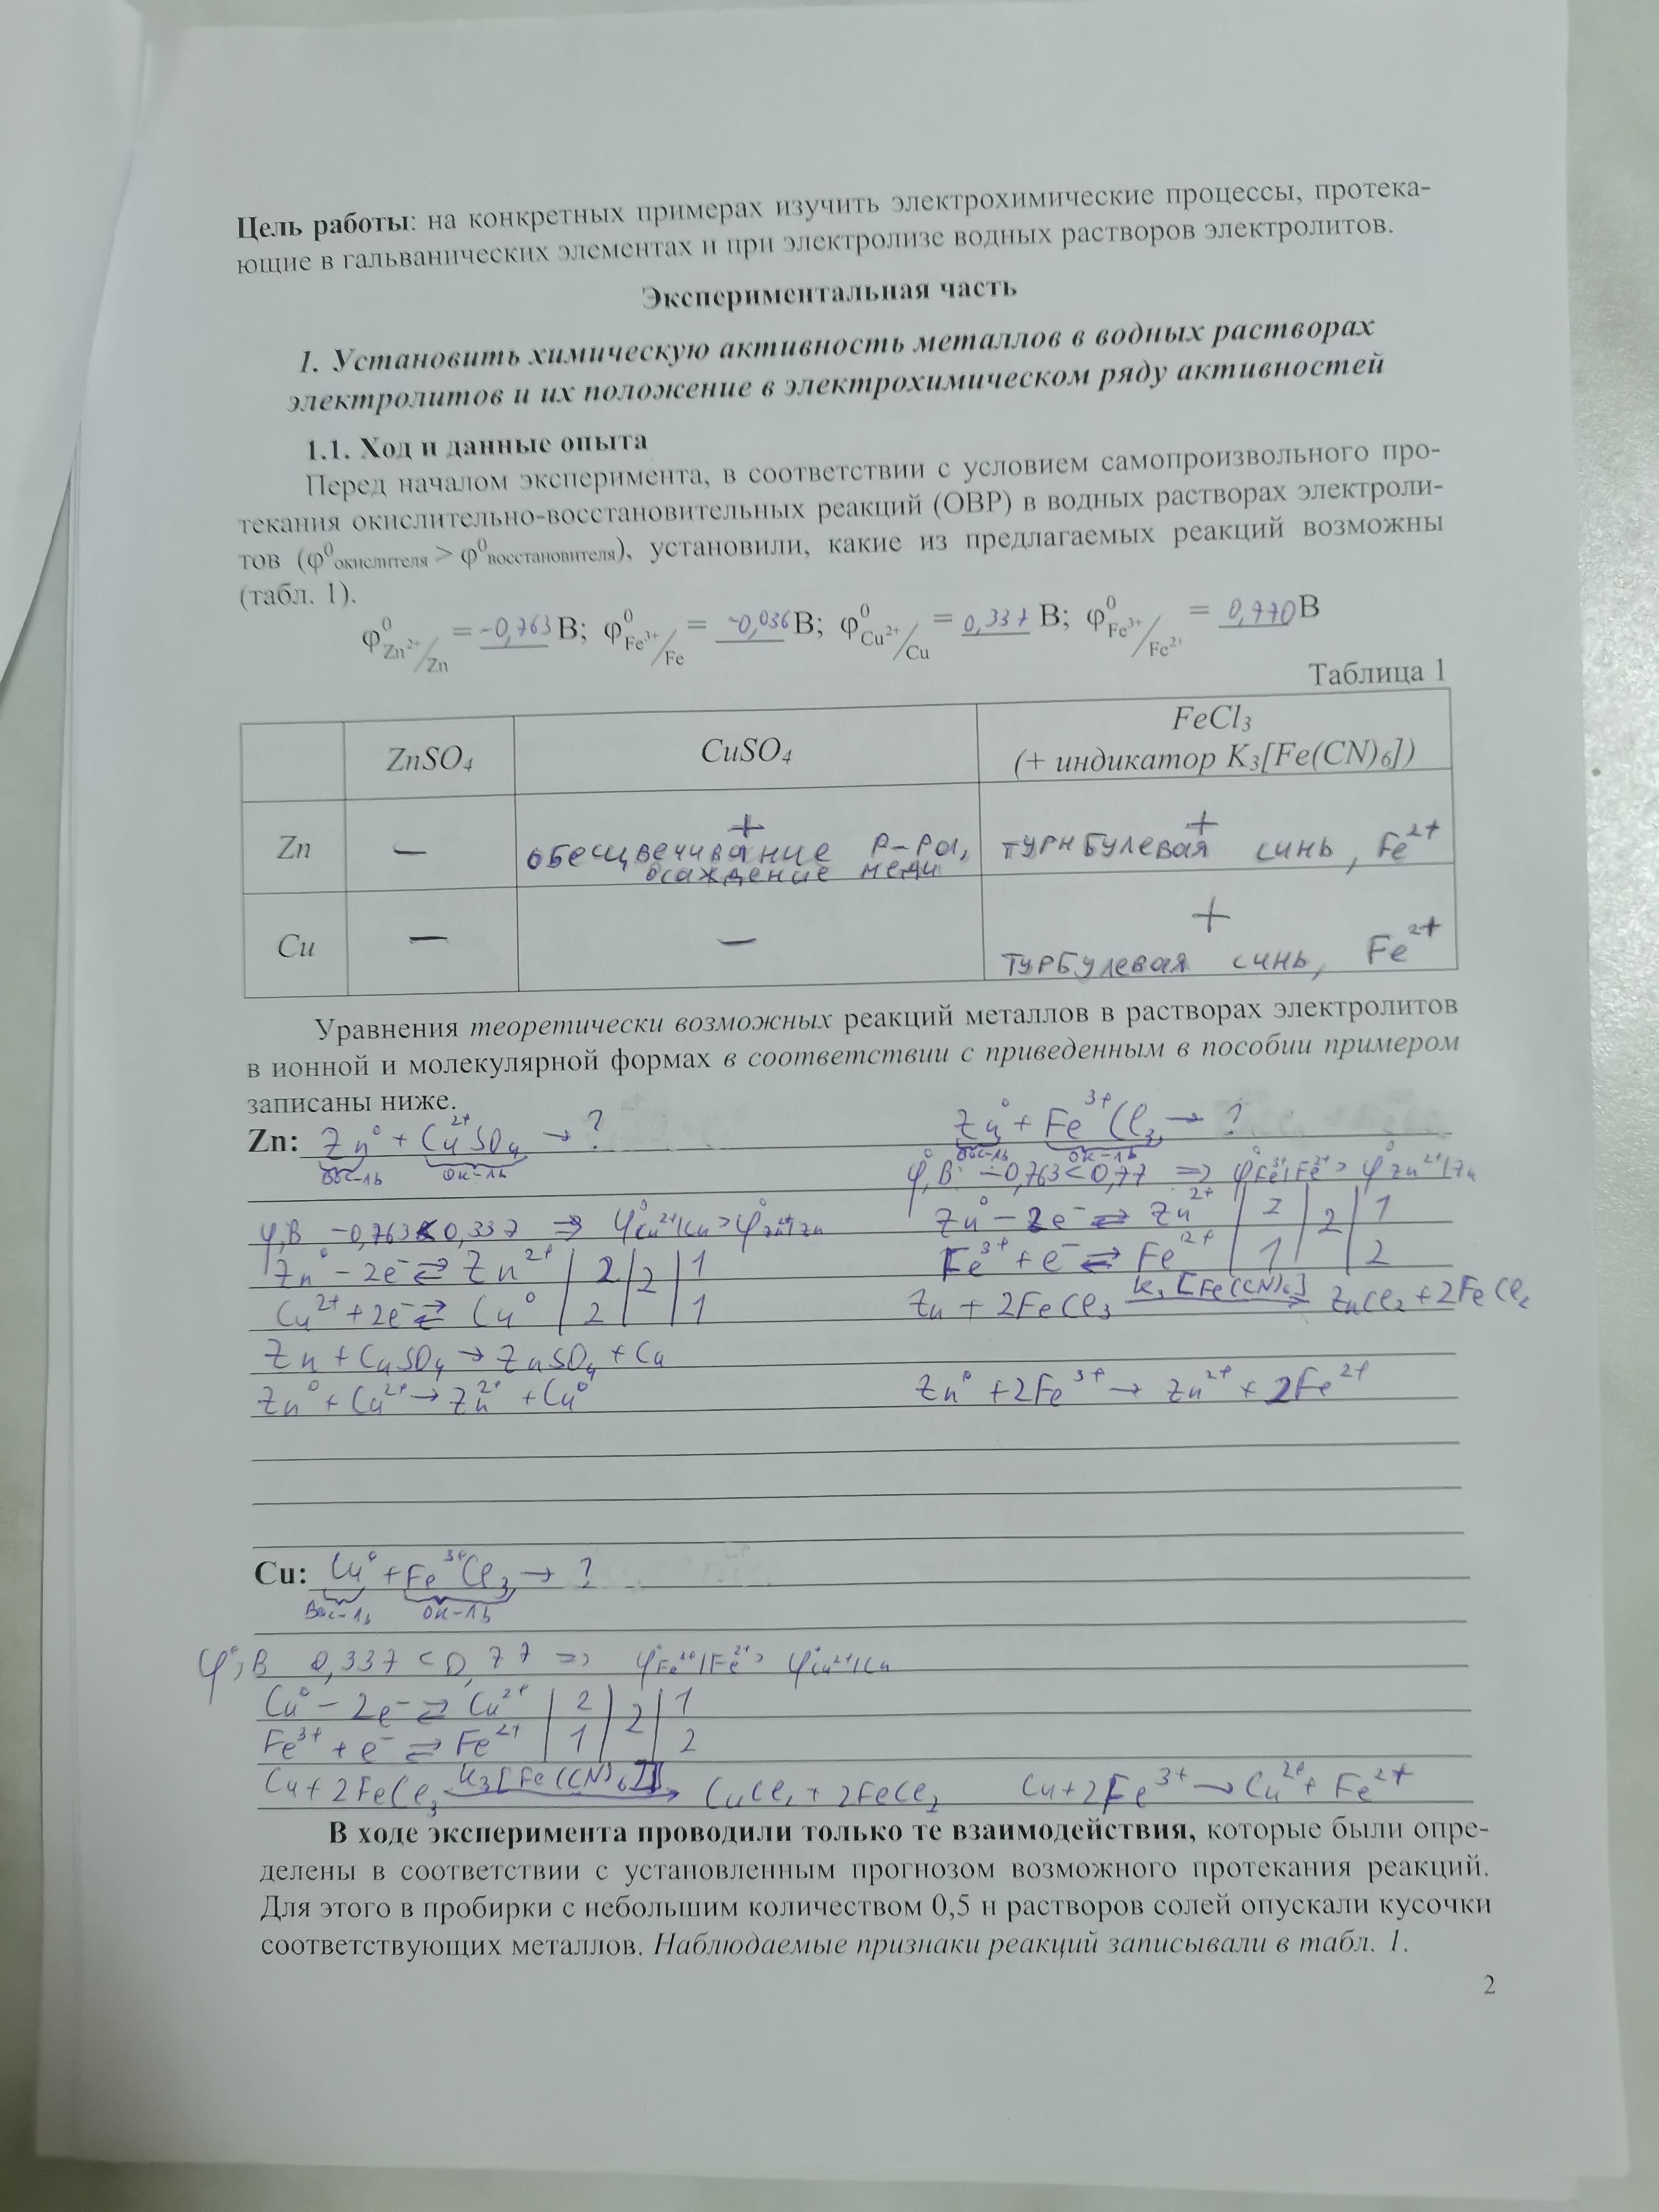 Цель работы: на конкретных примерах изучить электрохимические процессы, протека-
ющие в гальванических элементах и при электролизе водных растворов электролитов.
Экспериментальная часть
1. Установить химическую активность металлов в водных растворах
электролитов и их положение в электрохимическом ряду активностей
1.1. Ход и данные опыта
Перед началом эксперимента, в соответствии с условием самопроизвольного про-
текания окислительно-восстановительных реакций (ОВР) в водных растворах электроли-
тов (φ⁰окислителя > φ⁰восстановителя), установили, какие из предлагаемых реакций возможны
(табл. 1).
φ⁰ Zn²⁺/Zn = -0,763 В; φ⁰ Fe³⁺/Fe = -0,036 В; φ⁰ Cu²⁺/Cu = 0,337 В; φ⁰ Fe³⁺/Fe²⁺ = 0,770 В
Таблица 1
ZnSO₄ CuSO₄ FeCl₃
(+ индикатор K₃[Fe(CN)₆])
Zn — + обесцвечивание р-ра, осаждение меди + турнбулевая синь, Fe²⁺
Cu — — + турбулевая синь, Fe²⁺
Уравнения теоретически возможных реакций металлов в растворах электролитов
в ионной и молекулярной формах в соответствии с приведенным в пособии примером
записаны ниже.
Zn: Zn⁰ + Cu²⁺SO₄ → ?
вос-ль ок-ль
φ⁰,В -0,763 < 0,337 ⇒ φ⁰Cu²⁺/Cu > φ⁰Zn²⁺/Zn
Zn⁰ - 2e⁻ ⇄ Zn²⁺ | 2 | 2 | 1
Cu²⁺ + 2e⁻ ⇄ Cu⁰ | 2 | | 1
Zn + CuSO₄ → ZnSO₄ + Cu
Zn⁰ + Cu²⁺ → Zn²⁺ + Cu⁰
Zn⁰ + Fe³⁺Cl₃ → ?
вос-ль ок-ль
φ⁰,В -0,763 < 0,77 ⇒ φ⁰Fe³⁺/Fe²⁺ > φ⁰Zn²⁺/Zn
Zn⁰ - 2e⁻ ⇄ Zn²⁺ | 2 | 2 | 1
Fe³⁺ + e⁻ ⇄ Fe²⁺ | 1 | | 2
Zn + 2FeCl₃ K₃[Fe(CN)₆]→ ZnCl₂ + 2FeCl₂
Zn⁰ + 2Fe³⁺ → Zn²⁺ + 2Fe²⁺
Cu: Cu⁰ + Fe³⁺Cl₃ → ?
Вос-ль ок-ль
φ⁰,В 0,337 < 0,77 ⇒ φ⁰Fe³⁺/Fe²⁺ > φ⁰Cu²⁺/Cu
Cu⁰ - 2e⁻ ⇄ Cu²⁺ | 2 | 2 | 1
Fe³⁺ + e⁻ ⇄ Fe²⁺ | 1 | | 2
Cu + 2FeCl₃ K₃[Fe(CN)₆]→ CuCl₂ + 2FeCl₂ Cu + 2Fe³⁺ → Cu²⁺ + Fe²⁺
В ходе эксперимента проводили только те взаимодействия, которые были опре-
делены в соответствии с установленным прогнозом возможного протекания реакций.
Для этого в пробирки с небольшим количеством 0,5 н растворов солей опускали кусочки
соответствующих металлов. Наблюдаемые признаки реакций записывали в табл. 1.
2